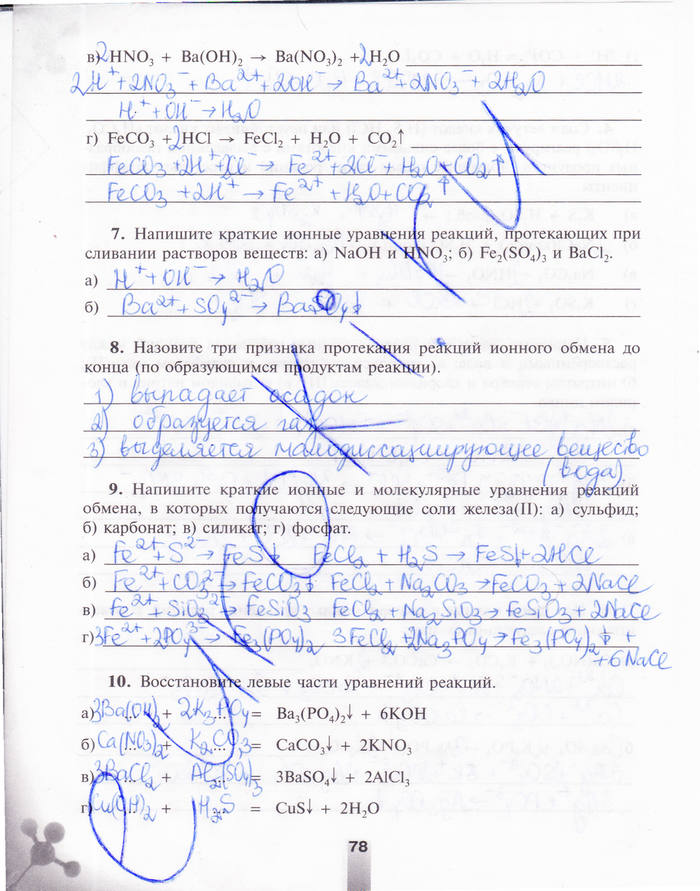 в) 2HNO₃ + Ba(OH)₂ → Ba(NO₃)₂ + 2H₂O
2H⁺ + 2NO₃⁻ + Ba²⁺ + 2OH⁻ → Ba²⁺ + 2NO₃⁻ + 2H₂O
H⁺ + OH⁻ → H₂O
г) FeCO₃ + 2HCl → FeCl₂ + H₂O + CO₂↑
FeCO₃ + 2H⁺ + 2Cl⁻ → Fe²⁺ + 2Cl⁻ + H₂O + CO₂↑
FeCO₃ + 2H⁺ → Fe²⁺ + H₂O + CO₂↑
7. Напишите краткие ионные уравнения реакций, протекающих при
сливании растворов веществ: а) NaOH и HNO₃; б) Fe₂(SO₄)₃ и BaCl₂.
а) H⁺ + OH⁻ → H₂O
б) Ba²⁺ + SO₄²⁻ → BaSO₄↓
8. Назовите три признака протекания реакций ионного обмена до
конца (по образующимся продуктам реакции).
1) выпадает осадок
2) образуется газ
3) выделяется малодиссациирующее вещество
(вода).
9. Напишите краткие ионные и молекулярные уравнения реакций
обмена, в которых получаются следующие соли железа(II): а) сульфид;
б) карбонат; в) силикат; г) фосфат.
а) Fe²⁺ + S²⁻ → FeS↓ FeCl₂ + H₂S → FeS↓ + 2HCl
б) Fe²⁺ + CO₃²⁻ → FeCO₃↓ FeCl₂ + Na₂CO₃ → FeCO₃ + 2NaCl
в) Fe²⁺ + SiO₃²⁻ → FeSiO₃ FeCl₂ + Na₂SiO₃ → FeSiO₃ + 2NaCl
г) 3Fe²⁺ + 2PO₄³⁻ → Fe₃(PO₄)₂ 3FeCl₂ + 2Na₃PO₄ → Fe₃(PO₄)₂↓ +
+ 6NaCl
10. Восстановите левые части уравнений реакций.
а) 3Ba(OH)₂ + 2K₃PO₄ = Ba₃(PO₄)₂↓ + 6KOH
б) Ca(NO₃)₂ + K₂CO₃ = CaCO₃↓ + 2KNO₃
в) 3BaCl₂ + Al₂(SO₄)₃ = 3BaSO₄↓ + 2AlCl₃
г) Cu(OH)₂ + H₂S = CuS↓ + 2H₂O
78